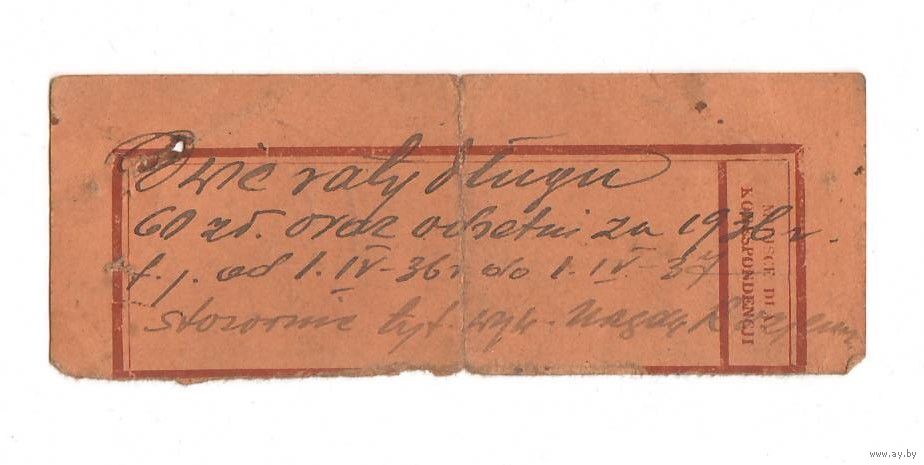 Dwie raty długu
60 zł. oraz odsetki za 1936 r.
t. j. od 1. IV-36 r do 1. IV-37
stosownie tyt. wyk.
MIEJSCE DLA
KORESPONDENCJI
www.ay.by